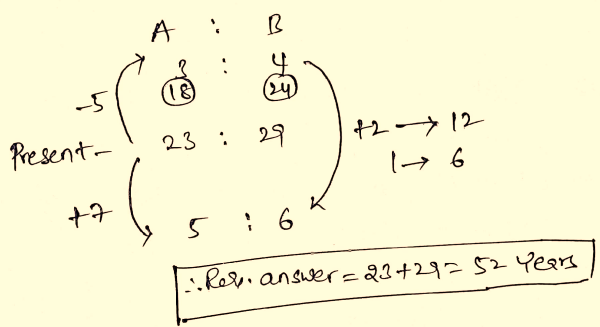 A : B
3 : 4
18 24
-5
+2 → 12
Present - 23 : 29
1 → 6
+7
5 : 6
∴ Req. answer = 23+29 = 52 Years